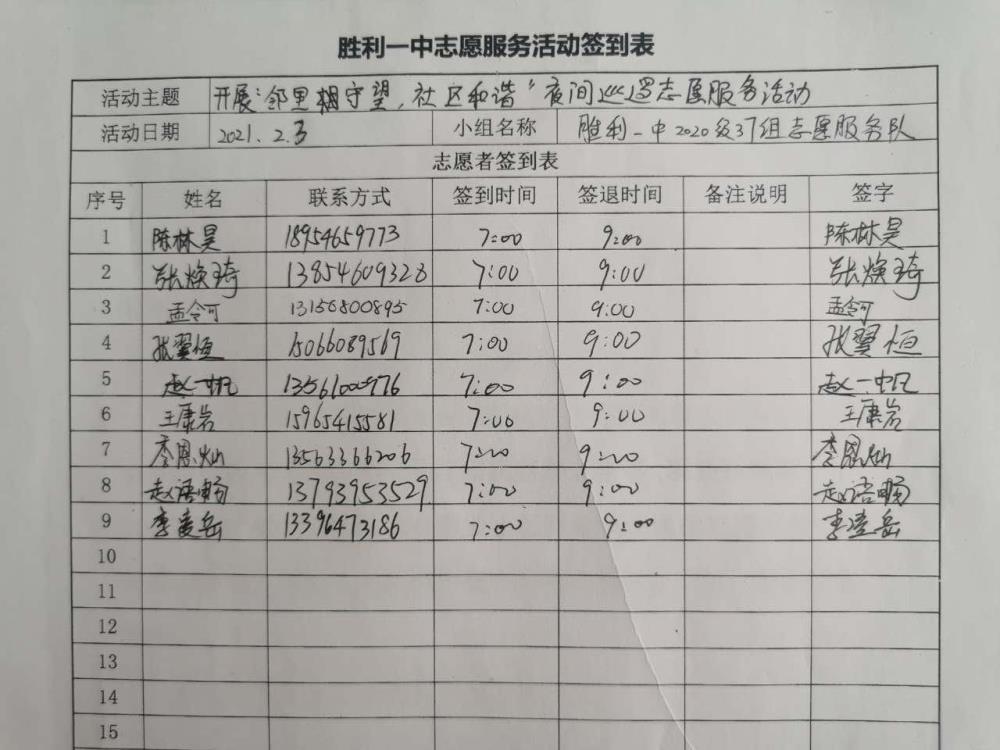 胜利一中志愿服务活动签到表
活动主题 开展“邻里相守望，社区和谐”夜间巡逻志愿服务活动
活动日期 2021.2.3 小组名称 胜利一中2020级37组志愿服务队
志愿者签到表
序号 姓名 联系方式 签到时间 签退时间 备注说明 签字
1 陈林昊 18954659773 7:00 9:00 陈林昊
2 张焕琦 13854609328 7:00 9:00 张焕琦
3 孟令可 13156800895 7:00 9:00 孟令可
4 张翼恒 15066089569 7:00 9:00 张翼恒
5 赵一帆 13561000976 7:00 9:00 赵一帆
6 王康岩 15965415581 7:00 9:00 王康岩
7 李恩灿 13563366206 7:00 9:00 李恩灿
8 赵语畅 13793953529 7:00 9:00 赵语畅
9 李凌岳 13396473186 7:00 9:00 李凌岳
10
11
12
13
14
15